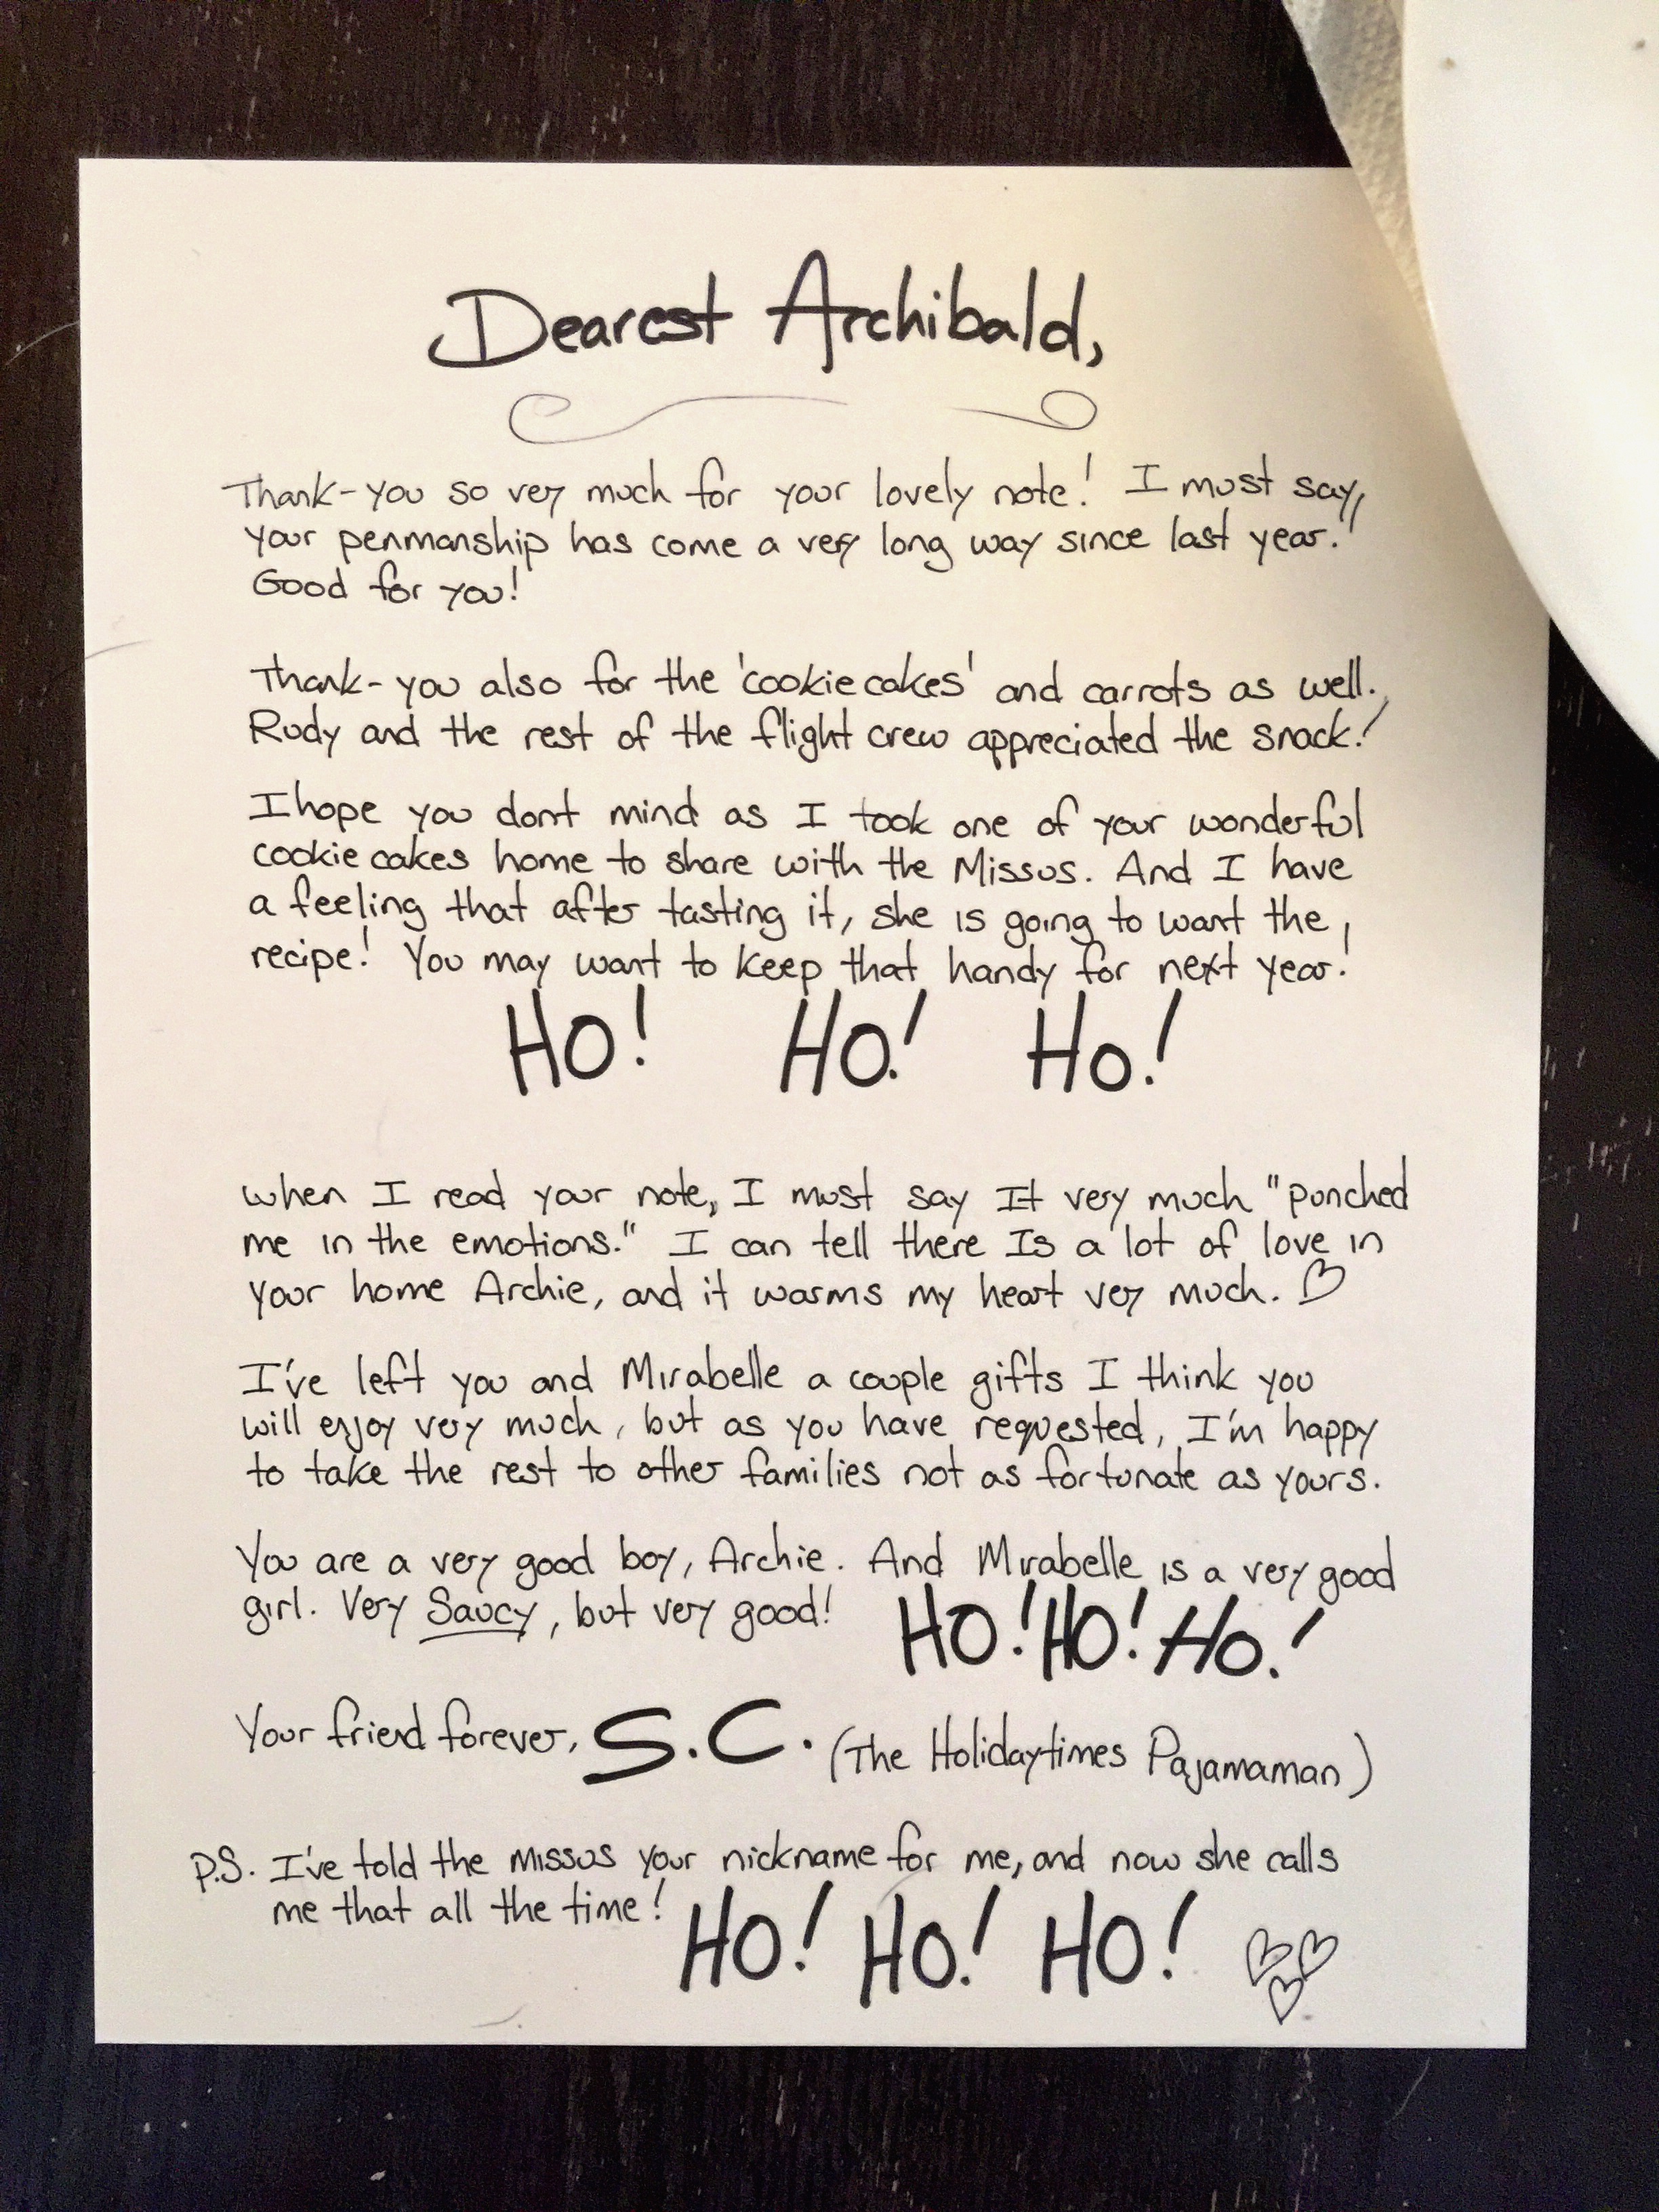 Dearest Archibald,
Thank-you so very much for your lovely note! I must say,
your penmanship has come a very long way since last year!
Good for you!
Thank-you also for the 'cookie cakes' and carrots as well.
Rudy and the rest of the flight crew appreciated the snack!
I hope you dont mind as I took one of your wonderful
cookie cakes home to share with the Missus. And I have
a feeling that after tasting it, she is going to want the
recipe! You may want to keep that handy for next year!
HO! HO! HO!
When I read your note, I must say It very much "punched
me in the emotions." I can tell there Is a lot of love in
your home Archie, and it warms my heart very much. ♡
I've left you and Mirabelle a couple gifts I think you
will enjoy very much, but as you have requested, I'm happy
to take the rest to other families not as fortunate as yours.
You are a very good boy, Archie. And Mirabelle is a very good
girl. Very Saucy, but very good! HO! HO! HO!
Your friend forever, S.C. (The Holidaytimes Pajamaman)
P.S. I've told the Missus your nickname for me, and now she calls
me that all the time! HO! HO! HO! ♡♡♡